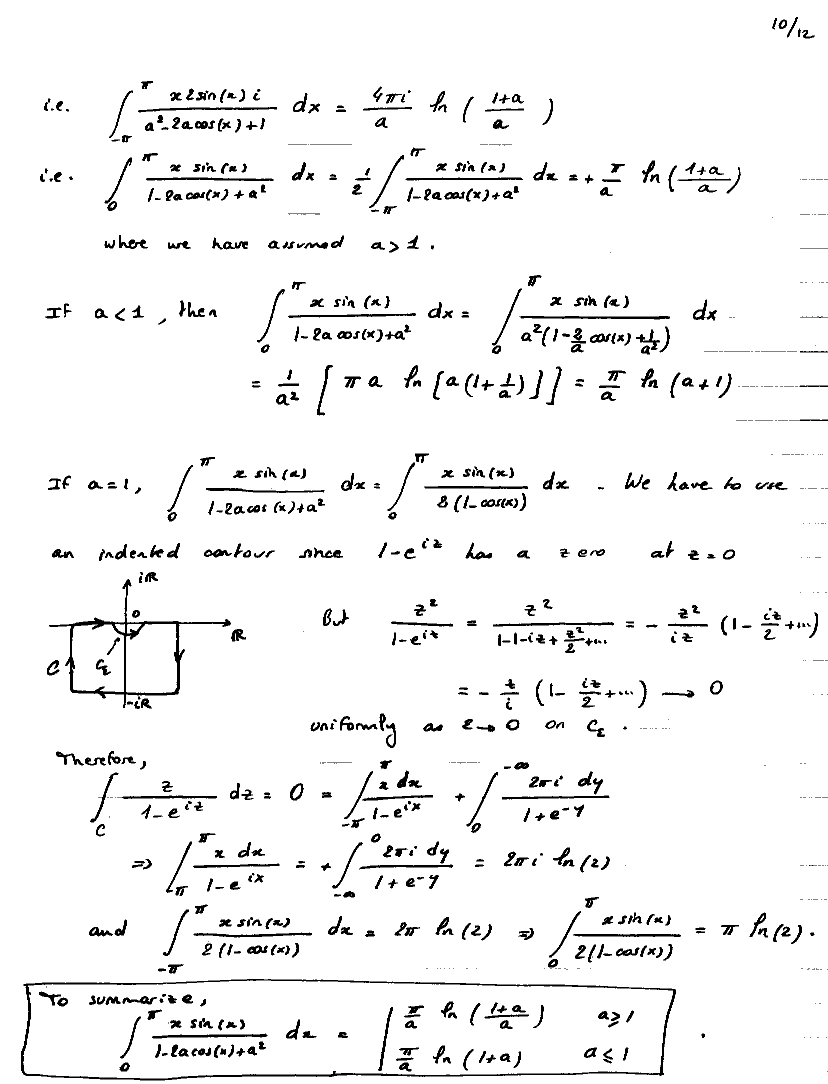 10/12
i.e. ∫_{-π}^{π} x 2 sin(x) i / (a² - 2a cos(x) + 1) dx = 4πi/a ln ( (1+a)/a )
i.e. ∫_0^π x sin(x) / (1 - 2a cos(x) + a²) dx = 1/2 ∫_{-π}^{π} x sin(x) / (1 - 2a cos(x) + a²) dx = + π/a ln ( (1+a)/a )
where we have assumed a > 1.
If a < 1, then ∫_0^π x sin(x) / (1 - 2a cos(x) + a²) dx = ∫_0^π x sin(x) / (a² (1 - 2/a cos(x) + 1/a²)) dx
= 1/a² [ π a ln [ a (1 + 1/a) ] ] = π/a ln (a+1)
If a = 1, ∫_0^π x sin(x) / (1 - 2a cos(x) + a²) dx = ∫_0^π x sin(x) / (2 (1 - cos(x))) dx . We have to use
an indented contour since 1 - e^{iz} has a zero at z = 0
iR
0
R
C
C_ε
-iR
But z² / (1 - e^{iz}) = z² / (1 - 1 - iz + z²/2 + ...) = - z²/(iz) (1 - iz/2 + ...)
= - z/i (1 - iz/2 + ...) → 0
uniformly as ε → 0 on C_ε .
Therefore,
∫_C z / (1 - e^{iz}) dz = 0 = ∫_{-π}^{π} x dx / (1 - e^{ix}) + ∫_0^{-∞} 2πi dy / (1 + e^{-y})
⇒ ∫_{-π}^{π} x dx / (1 - e^{ix}) = + ∫_{-∞}^0 2πi dy / (1 + e^{-y}) = 2πi ln(2)
and ∫_{-π}^{π} x sin(x) / (2 (1 - cos(x))) dx = 2π ln(2) ⇒ ∫_0^π x sin(x) / (2(1 - cos(x))) = π ln(2).
To summarize,
∫_0^π x sin(x) / (1 - 2a cos(x) + a²) dx = | π/a ln ( (1+a)/a ) a ≥ 1
π/a ln (1+a) a ≤ 1 .